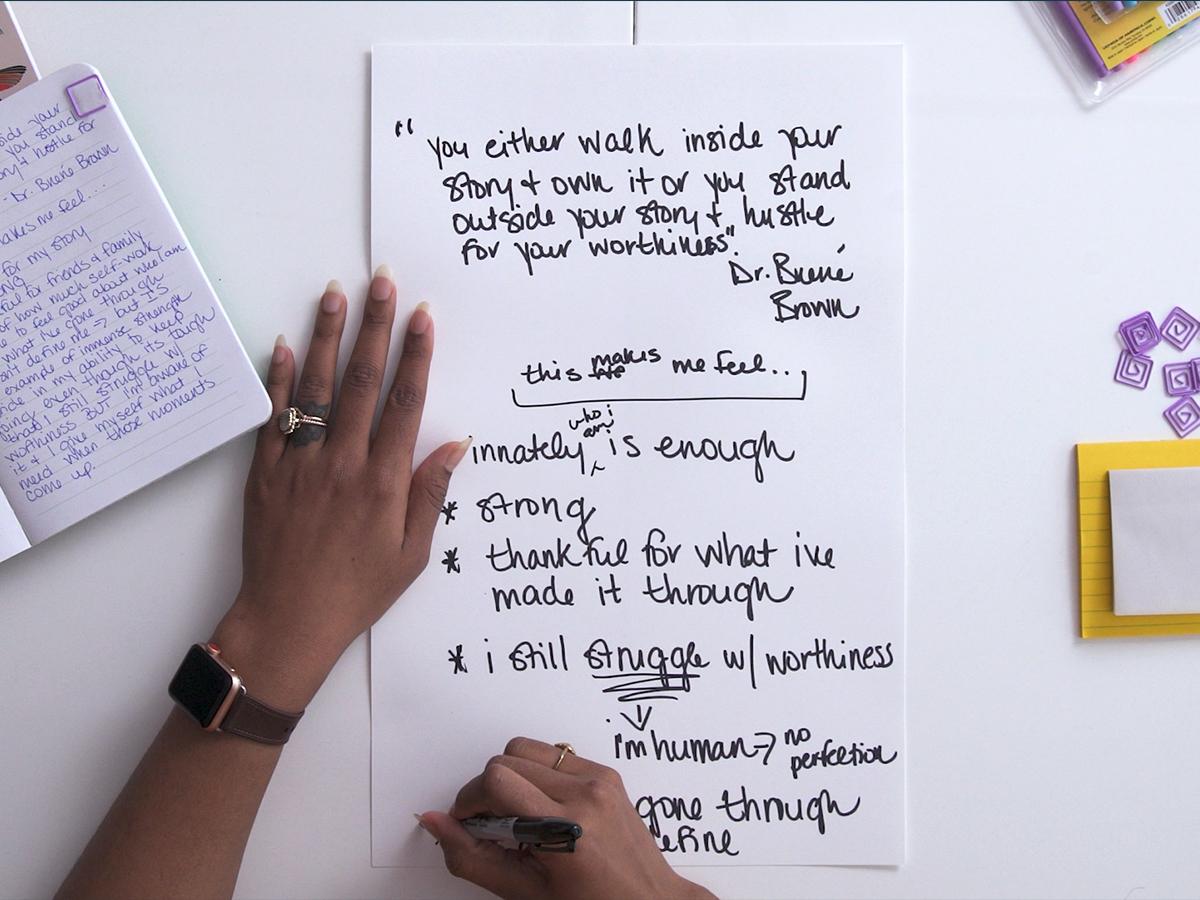 side your
you stand
story + hustle for
- Dr. Brené Brown
makes me feel...
for my story
for friends & family
of how much self-work
to feel good about who I am
what I've gone through
define me → but IS
example of immense strength
in my ability to keep
going even though its tough
that I still struggle w/
worthiness BUT i'm aware of
it + I give myself what I
need when those moments
come up.
"you either walk inside your
story + own it or you stand
outside your story + hustle
for your worthiness".
Dr. Brené
Brown
this makes me feel...
innately who i am is enough
* strong
* thankful for what ive
made it through
* i still struggle w/ worthiness
i'm human → no
perfection
gone through
efine